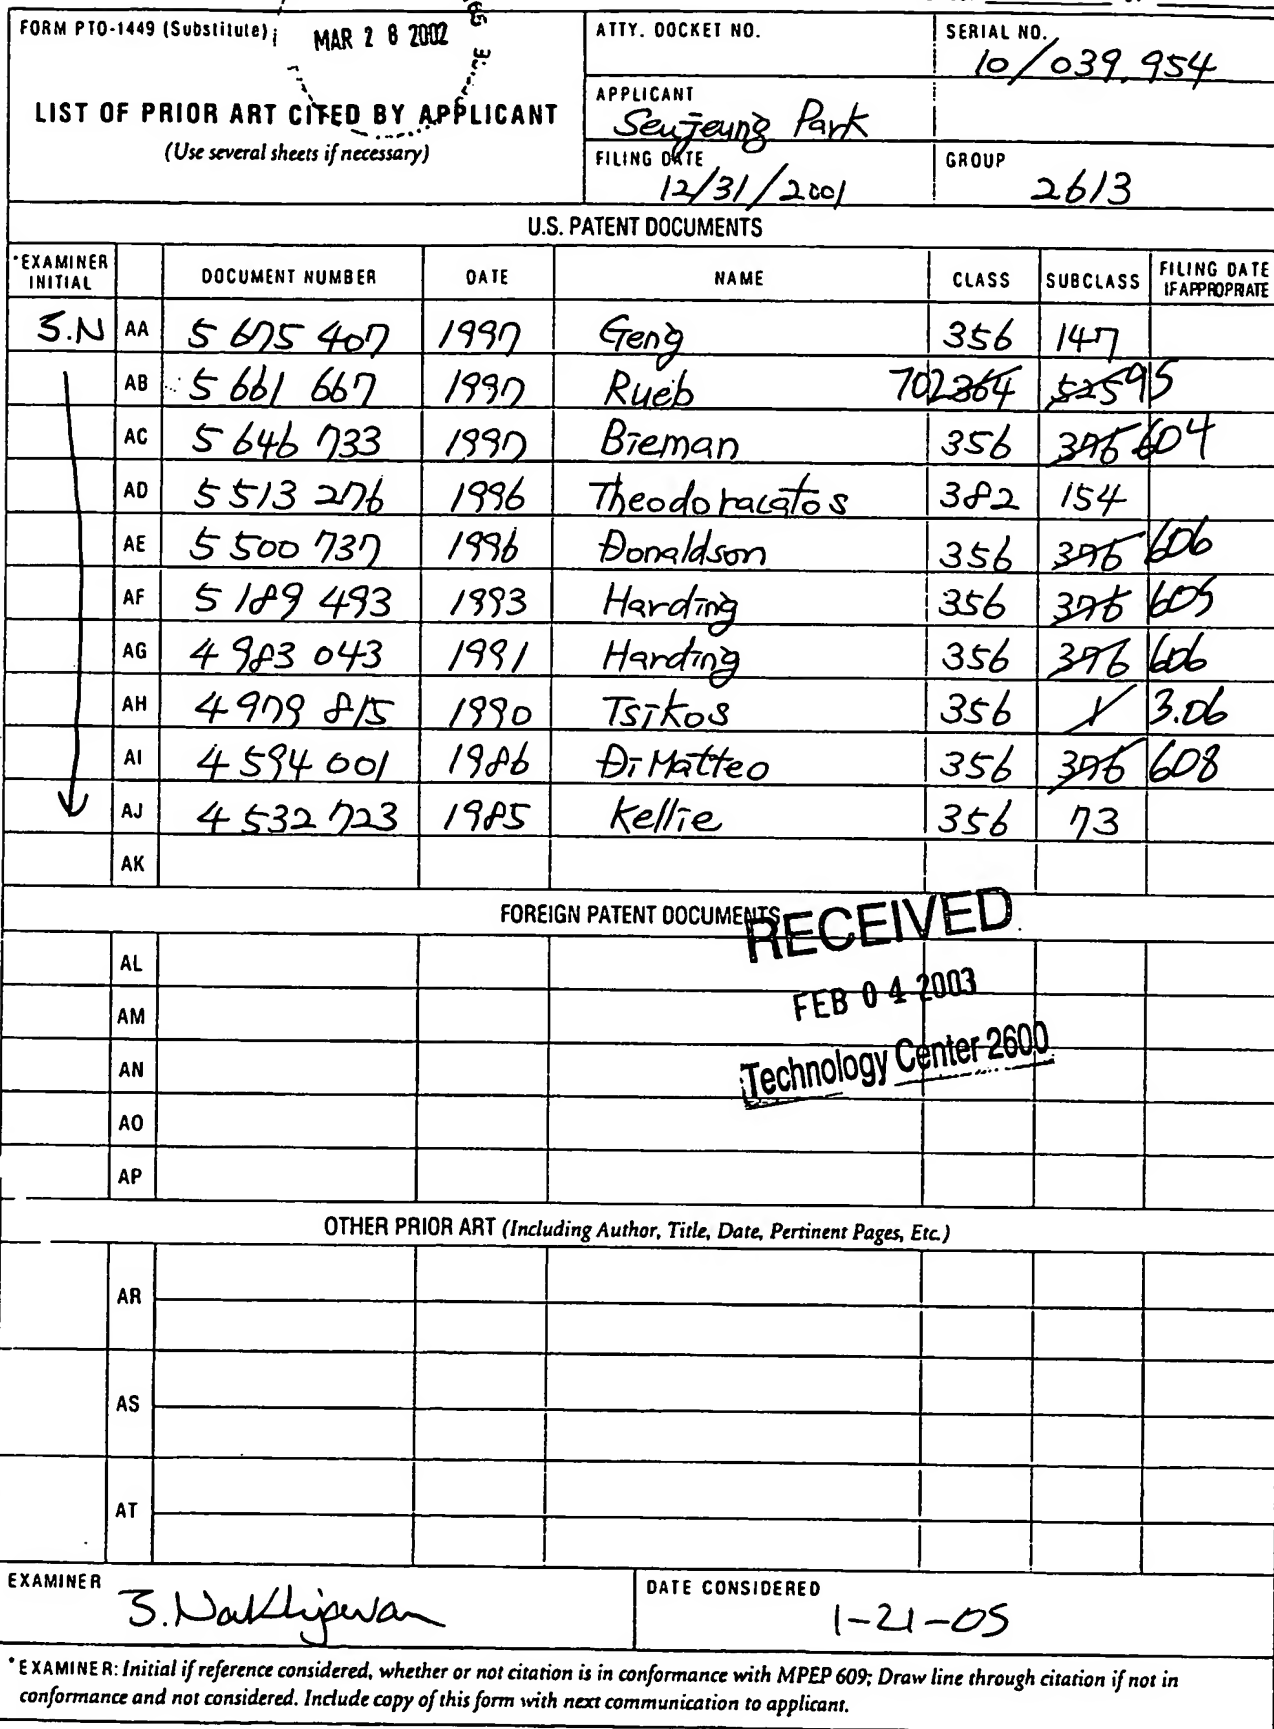 FORM PTO-1449 (Substitute)
MAR 28 2002
ATTY. DOCKET NO.
SERIAL NO.
10/039,954
LIST OF PRIOR ART CITED BY APPLICANT
(Use several sheets if necessary)
APPLICANT
Seujeung Park
FILING DATE
12/31/2001
GROUP
2613
U.S. PATENT DOCUMENTS
*EXAMINER INITIAL DOCUMENT NUMBER DATE NAME CLASS SUBCLASS FILING DATE IF APPROPRIATE
S.N AA 5 675 407 1997 Geng 356 147
AB 5 661 667 1997 Rueb 702 364 525 95
AC 5 646 733 1997 Bieman 356 376 604
AD 5 513 276 1996 Theodoracatos 382 154
AE 5 500 737 1996 Donaldson 356 376 606
AF 5 189 493 1993 Harding 356 376 605
AG 4 983 043 1991 Harding 356 376 606
AH 4 979 815 1990 Tsikos 356 1 3.06
AI 4 594 001 1986 DiMatteo 356 376 608
AJ 4 532 723 1985 Kellie 356 73
AK
FOREIGN PATENT DOCUMENTS
RECEIVED
AL
FEB 04 2003
AM
Technology Center 2600
AN
AO
AP
OTHER PRIOR ART (Including Author, Title, Date, Pertinent Pages, Etc.)
AR
AS
AT
EXAMINER
S. Nakhjavan
DATE CONSIDERED
1-21-05
*EXAMINER: Initial if reference considered, whether or not citation is in conformance with MPEP 609; Draw line through citation if not in
conformance and not considered. Include copy of this form with next communication to applicant.